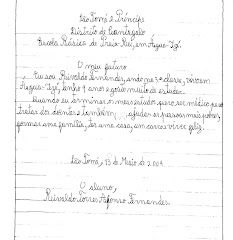 São Tomé e Príncipe
Distrito de Cantagalo
Escola Básica de Praia Rei, em Água-Izé.
O meu futuro
Eu sou Reivaldo Fernandes, ando na 3ª classe, vivo em
Água-Izé, tenho 9 anos e gosto muito de estudar.
Quando eu terminar o meu estudo, quero ser médico para
tratar dos doentes e também ajudar as pessoas mais pobres,
formar uma família, ter uma casa, um carro e viver feliz.
São Tomé, 13 de Maio de 2004.
O aluno,
Reivaldo Torres Afonso Fernandes.